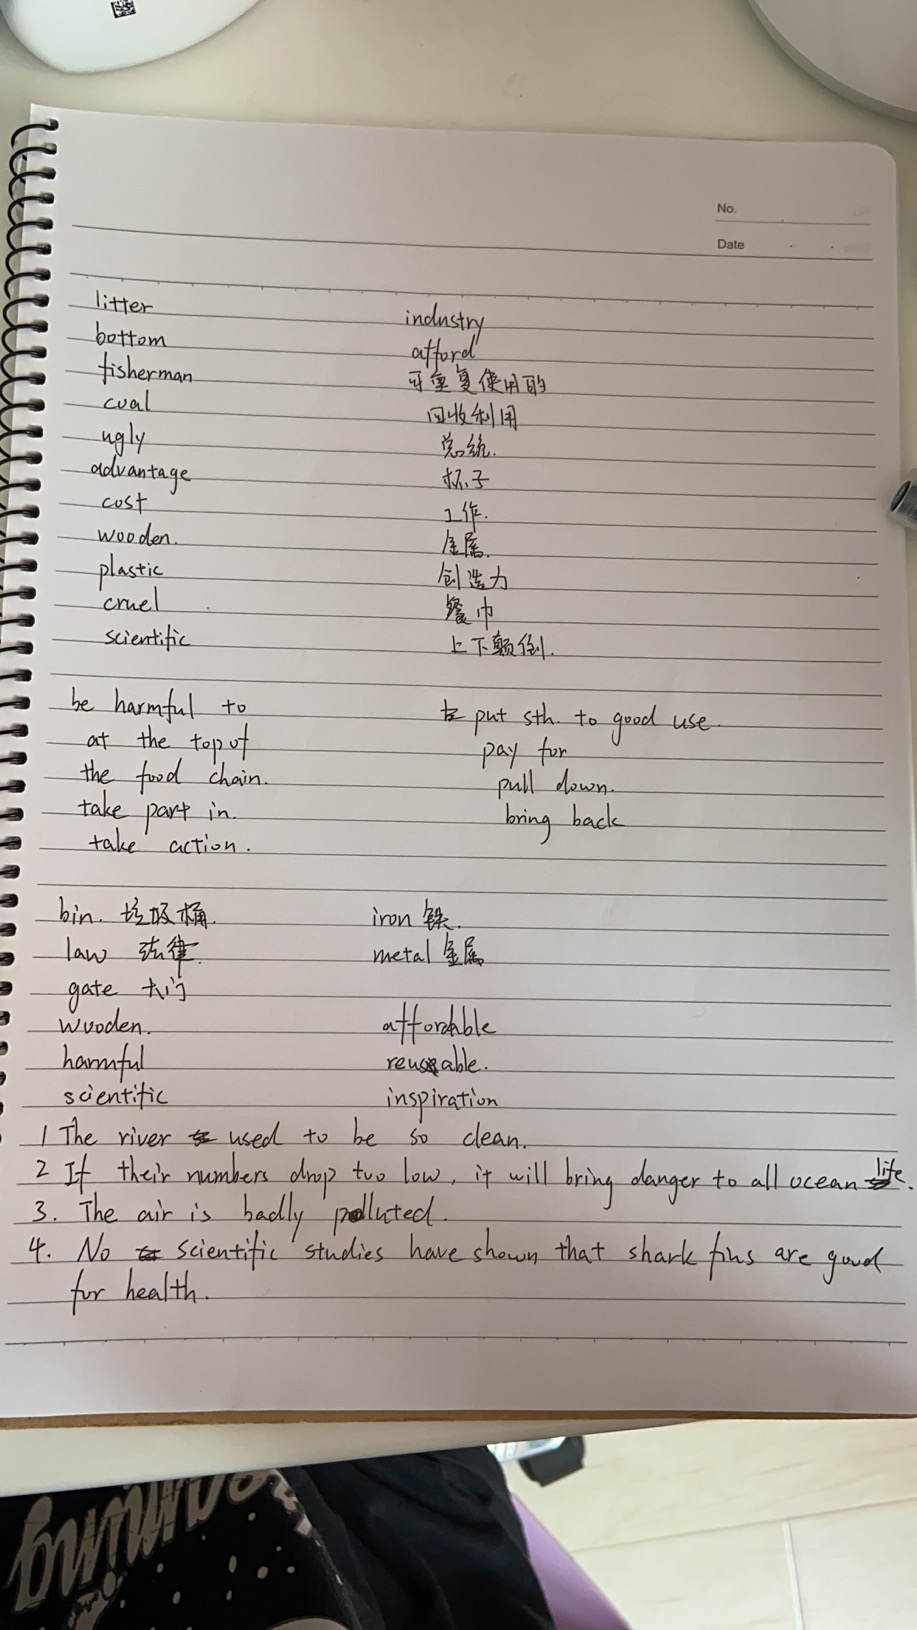 No.
Date
litter
bottom
fisherman
coal
ugly
advantage
cost
wooden.
plastic
cruel
scientific
industry
afford
可重复使用的
回收利用
总统.
杯子
工作.
金属.
创造力
餐巾
上下颠倒.
be harmful to
at the top of
the food chain.
take part in.
take action.
put sth. to good use.
pay for
pull down.
bring back
bin. 垃圾桶.
iron 铁.
law 法律.
metal 金属
gate 大门
wooden.
affordable
harmful
reusable.
scientific
inspiration
1 The river used to be so clean.
2 If their numbers drop too low, it will bring danger to all ocean life.
3. The air is badly polluted.
4. No scientific studies have shown that shark fins are good
for health.